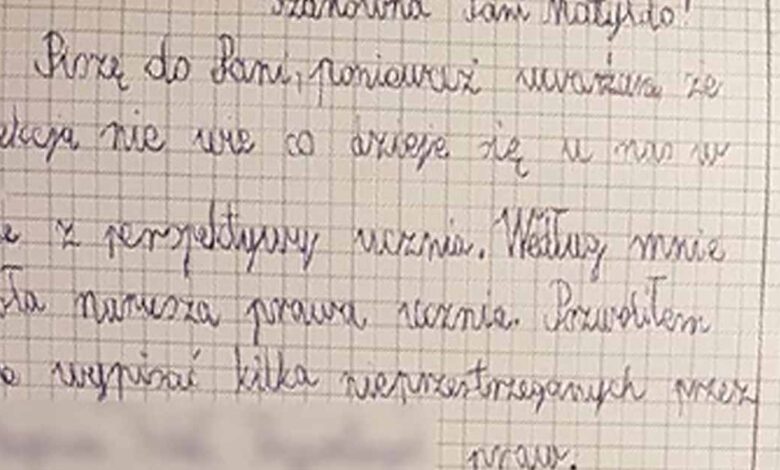 Szanowna Pani Matyldo!
Piszę do Pani, ponieważ uważam że
ekcja nie wie co dzieje się u nas w
e z perspektywy ucznia. Według mnie
oła narusza prawa ucznia. Pozwoliłem
e wypisać kilka nieprzestrzeganych przez
praw.